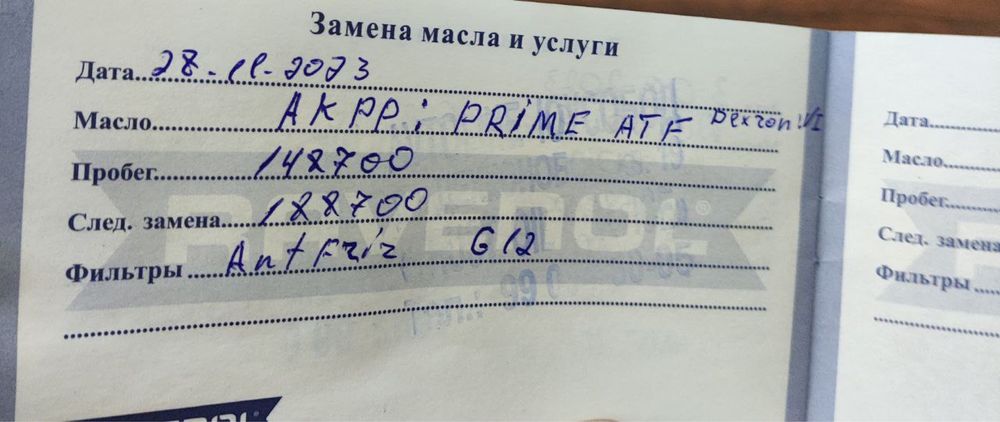 Замена масла и услуги
Дата 28-11-2023
Масло АКРР: PRIME ATF Dexron VI
Пробег 148700
След. замена 188700
Фильтры Antfriz G12
RAVENOL®
Дата
Масло
Пробег
След. замена
Фильтры